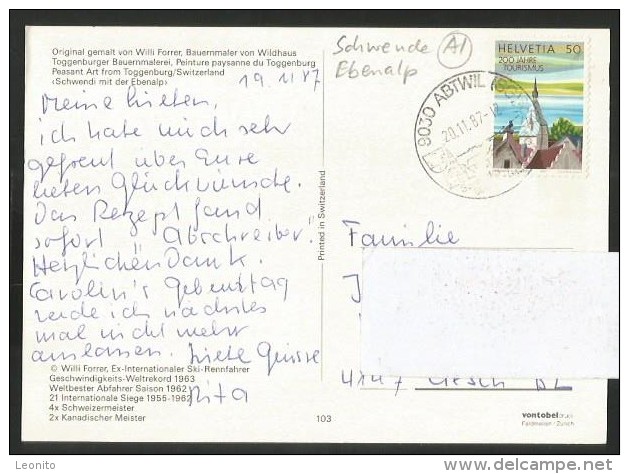 Original gemalt von Willi Forrer, Bauernmaler von Wildhaus
Toggenburger Bauernmalerei, Peinture paysanne du Toggenburg
Peasant Art from Toggenburg/Switzerland
‹Schwendi mit der Ebenalp›
19 11 87
Meine Lieben,
ich habe mich sehr
gefreut über Eure
lieben Glückwünsche.
Das Rezept fand
sofort Abschreiber.
Herzlichen Dank.
Carolin's Geburtstag
werde ich nächstes
mal nicht mehr
auslassen. Liebe Grüsse
Rita
© Willi Forrer, Ex-Internationaler Ski-Rennfahrer
Geschwindigkeits-Weltrekord 1963
Weltbester Abfahrer Saison 1962
21 Internationale Siege 1955-1962
4x Schweizermeister
2x Kanadischer Meister
103
Printed in Switzerland
Schwende A1
Ebenalp
HELVETIA 50
200 JAHRE
TOURISMUS
9030 ABTWIL
20.11.87
Familie
4147 Aesch BL
vontobel
Feldmeilen / Zürich
Leonito
www.delcampe.net